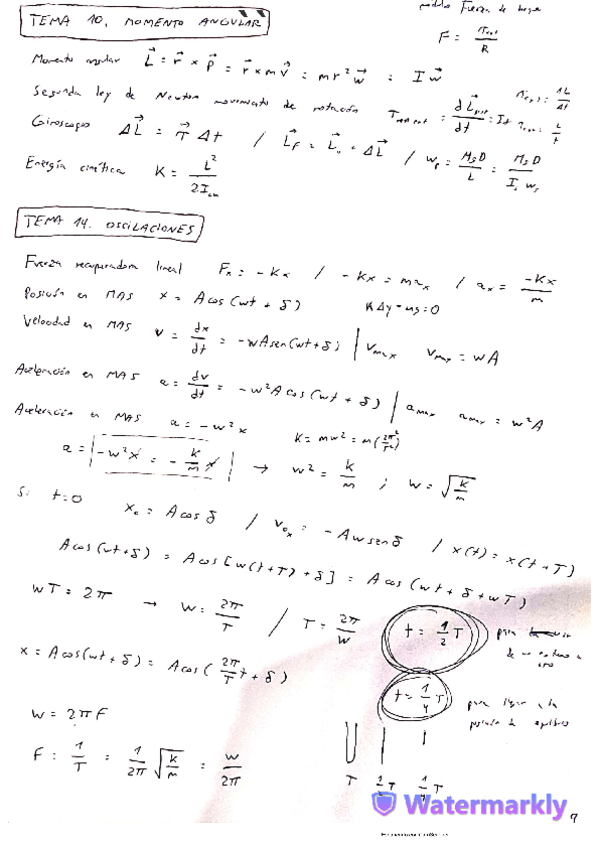 TEMA 10. MOMENTO ANGULAR
módulo Fuerza de
F = / R
Momento angular L⃗ = r⃗ × p⃗ = r⃗ × m v⃗ = m r² w⃗ = I w⃗
Segunda ley de Newton movimiento de rotación = dL⃗ / dt
Giroscopos ΔL⃗ = τ⃗ Δt / L⃗f = L⃗₀ + ΔL⃗ / wp = MgD / L = MgD / Is ws
Energía cinética K = L² / 2Icm
TEMA 14. OSCILACIONES
Fuerza recuperadora lineal Fx = -Kx / -Kx = max / ax = -Kx / m
Posición en MAS x = A cos(wt + δ) KΔy - mg = 0
Velocidad en MAS v = dx/dt = -wA sen(wt + δ) | vmax vmax = wA
Aceleración en MAS a = dv/dt = -w²A cos(wt + δ) | amax amax = w²A
Aceleración en MAS a = -w²x K = mw² = m(2π²/T²)
a = |-w²x = -K/m x| → w² = K/m ; w = √(K/m)
Si t = 0 x₀ = A cos δ / v₀x = -Aw sen δ / x(t) = x(t+T)
A cos(wt + δ) = A cos[w(t+T) + δ] = A cos(wt + δ + wT)
wT = 2π → w = 2π/T / T = 2π/w
t = 1/2 T para
de un extremo a
otro
x = A cos(wt + δ) = A cos(2π/T t + δ)
t = 1/4 T para llegar a la
posición de equilibrio
w = 2πF
F = 1/T = 1/2π √(K/m) = w/2π
T 1/2 T 1/4 T
Watermarkly
9